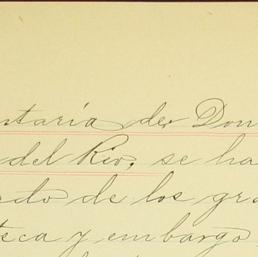 ntaría de Don
del Rio, se ha
do de los gra
teca y embargo